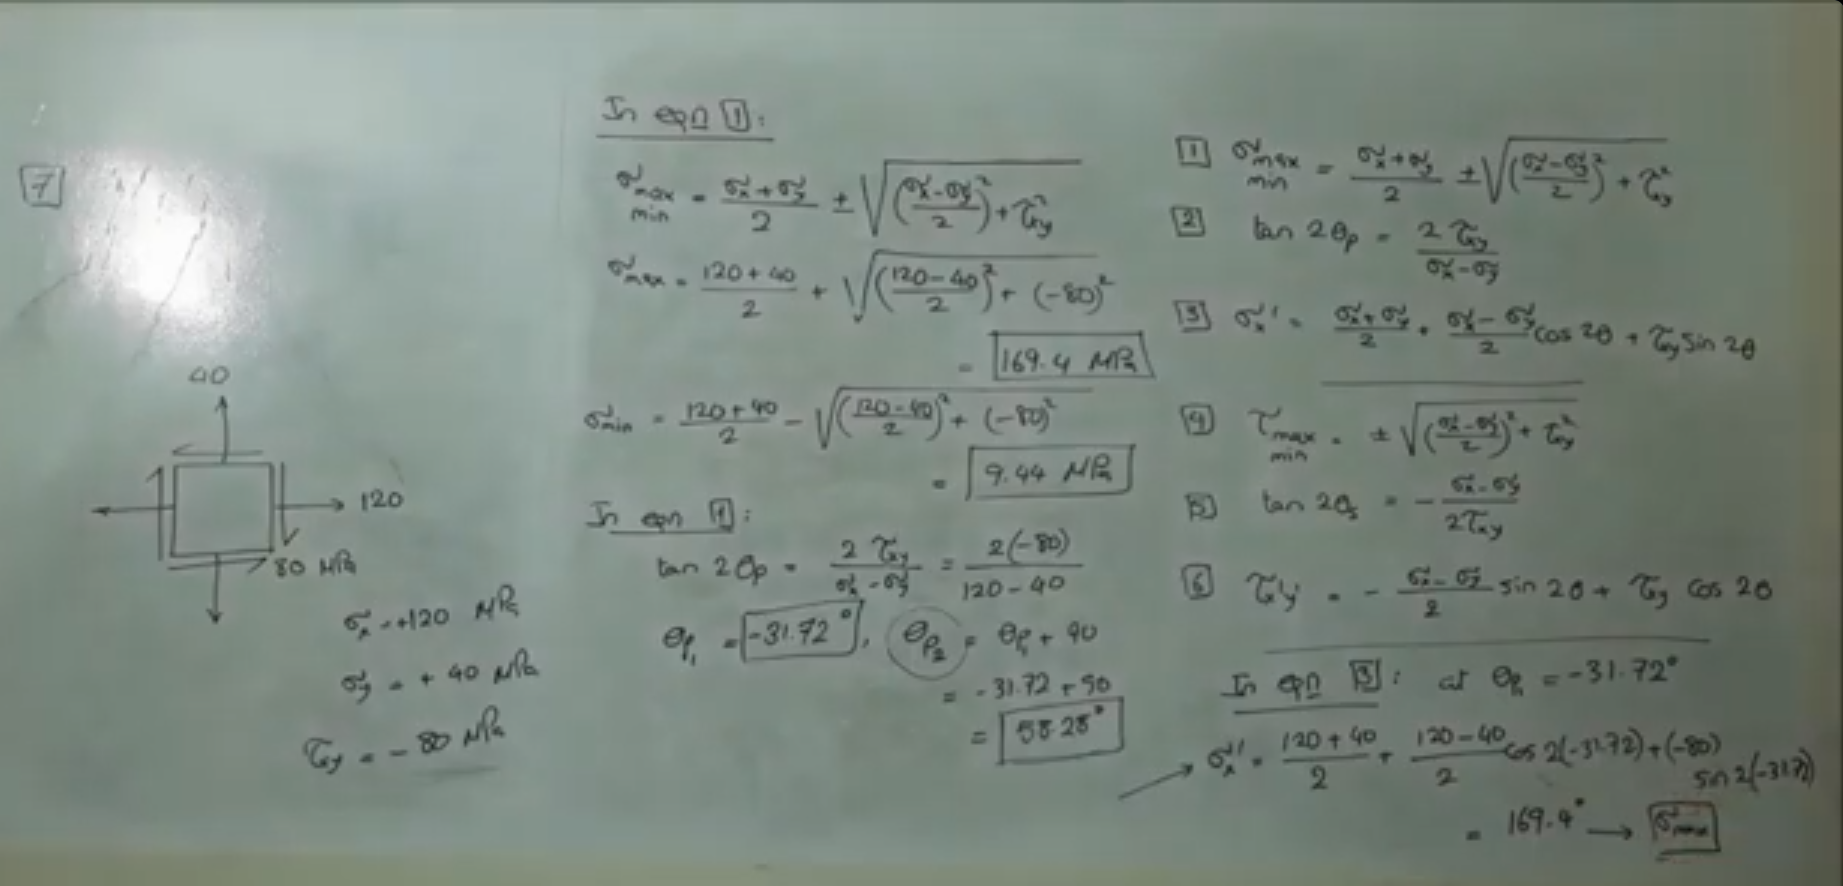 7
40
120
80 MPa
σx = +120 MPa
σy = + 40 MPa
τxy = - 80 MPa
In eqn 1:
σ max min = (σx + σy)/2 ± √(((σx - σy)/2)² + τxy²)
σmax = (120 + 40)/2 + √(((120 - 40)/2)² + (-80)²)
= 169.4 MPa
σmin = (120 + 40)/2 - √(((120 - 40)/2)² + (-80)²)
= 9.44 MPa
In eqn 1:
tan 2θp = 2τxy/(σx - σy) = 2(-80)/(120 - 40)
θp1 = -31.72°, θp2 = θp1 + 90
= -31.72 + 90
= 58.28°
1 σ max min = (σx + σy)/2 ± √(((σx - σy)/2)² + τxy²)
2 tan 2θp = 2τxy/(σx - σy)
3 σx' = (σx + σy)/2 + (σx - σy)/2 cos 2θ + τxy sin 2θ
4 τ max min = ± √(((σx - σy)/2)² + τxy²)
5 tan 2θs = - (σx - σy)/(2τxy)
6 τx'y' = - (σx - σy)/2 sin 2θ + τxy cos 2θ
In eqn 3: at θp1 = -31.72°
σx' = (120 + 40)/2 + (120 - 40)/2 cos 2(-31.72) + (-80)
sin 2(-31.72)
= 169.4° → σmax